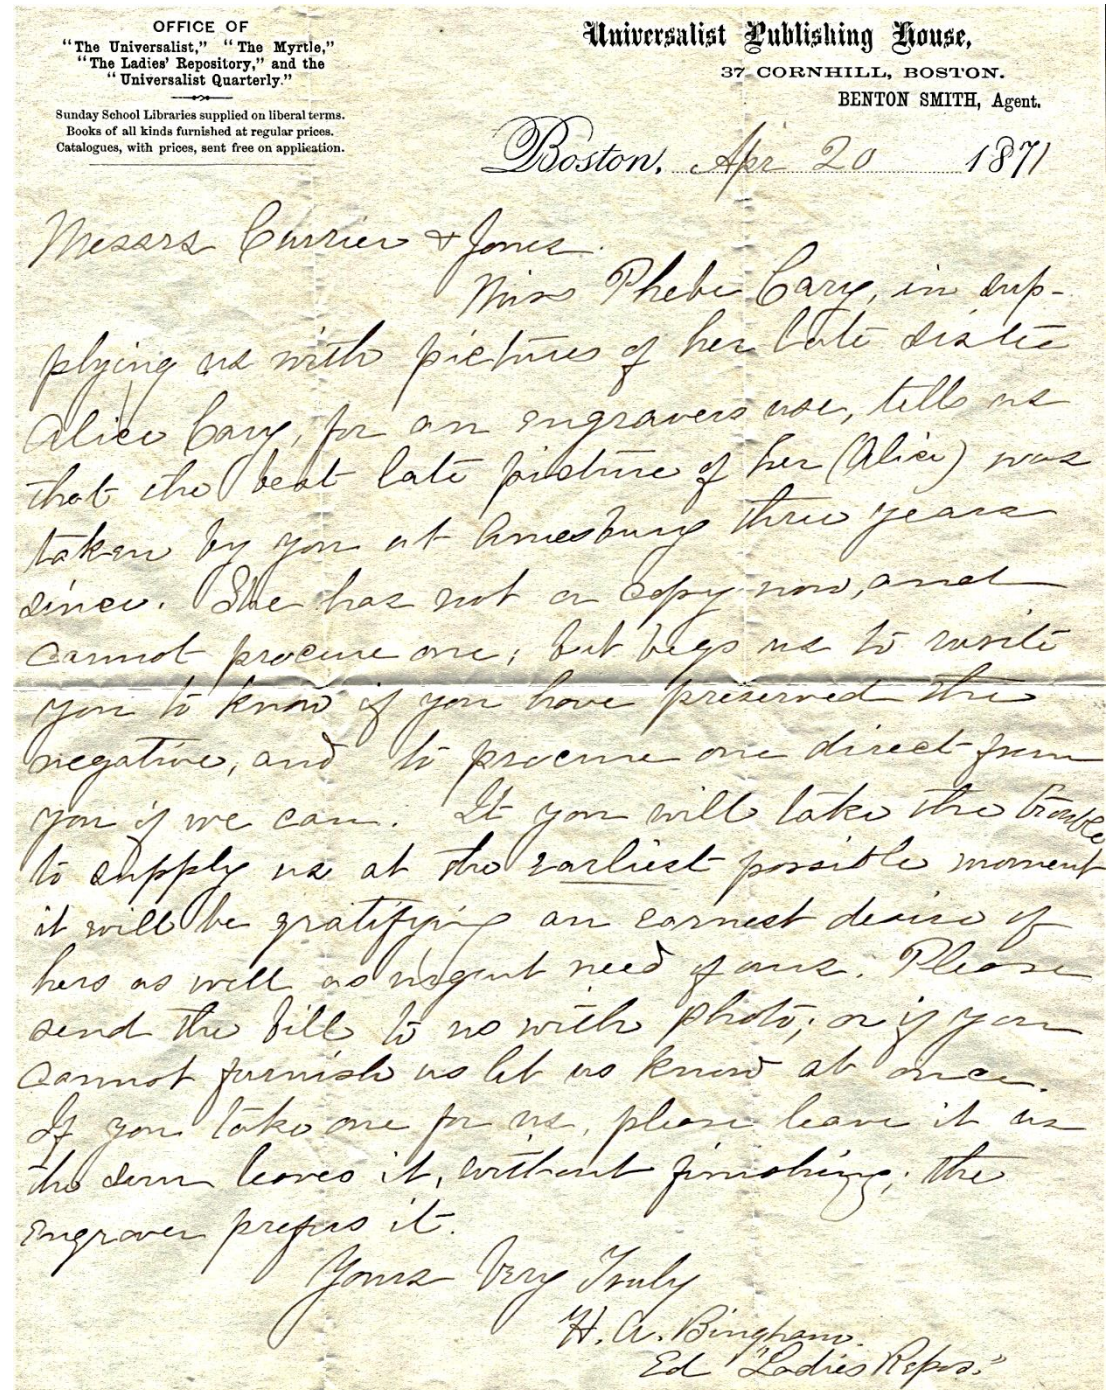 OFFICE OF
"The Universalist," "The Myrtle,"
"The Ladies' Repository," and the
"Universalist Quarterly."
Sunday School Libraries supplied on liberal terms.
Books of all kinds furnished at regular prices.
Catalogues, with prices, sent free on application.
Universalist Publishing House,
37 CORNHILL, BOSTON.
BENTON SMITH, Agent.
Boston, Apr 20 1871
Messrs Currier & Jones.
Miss Phebe Cary, in sup-
plying us with pictures of her late sister
Alice Cary, for an engravers use, tells us
that the best late picture of her (Alice) was
taken by you at Amesbury three years
since. She has not a copy now, and
cannot procure one; but begs us to write
you to know if you have preserved the
negative, and to procure one direct from
you if we can. If you will take the trouble
to supply us at the earliest possible moment
it will be gratifying an earnest desire of
hers as well as urgent need of ours. Please
send the bill to us with photo; or if you
cannot furnish us let us know at once.
If you take one for us, please leave it as
the sun leaves it, without finishing; the
engraver prefers it.
Yours Very Truly
H. A. Bingham.
Ed "Ladies Repos."